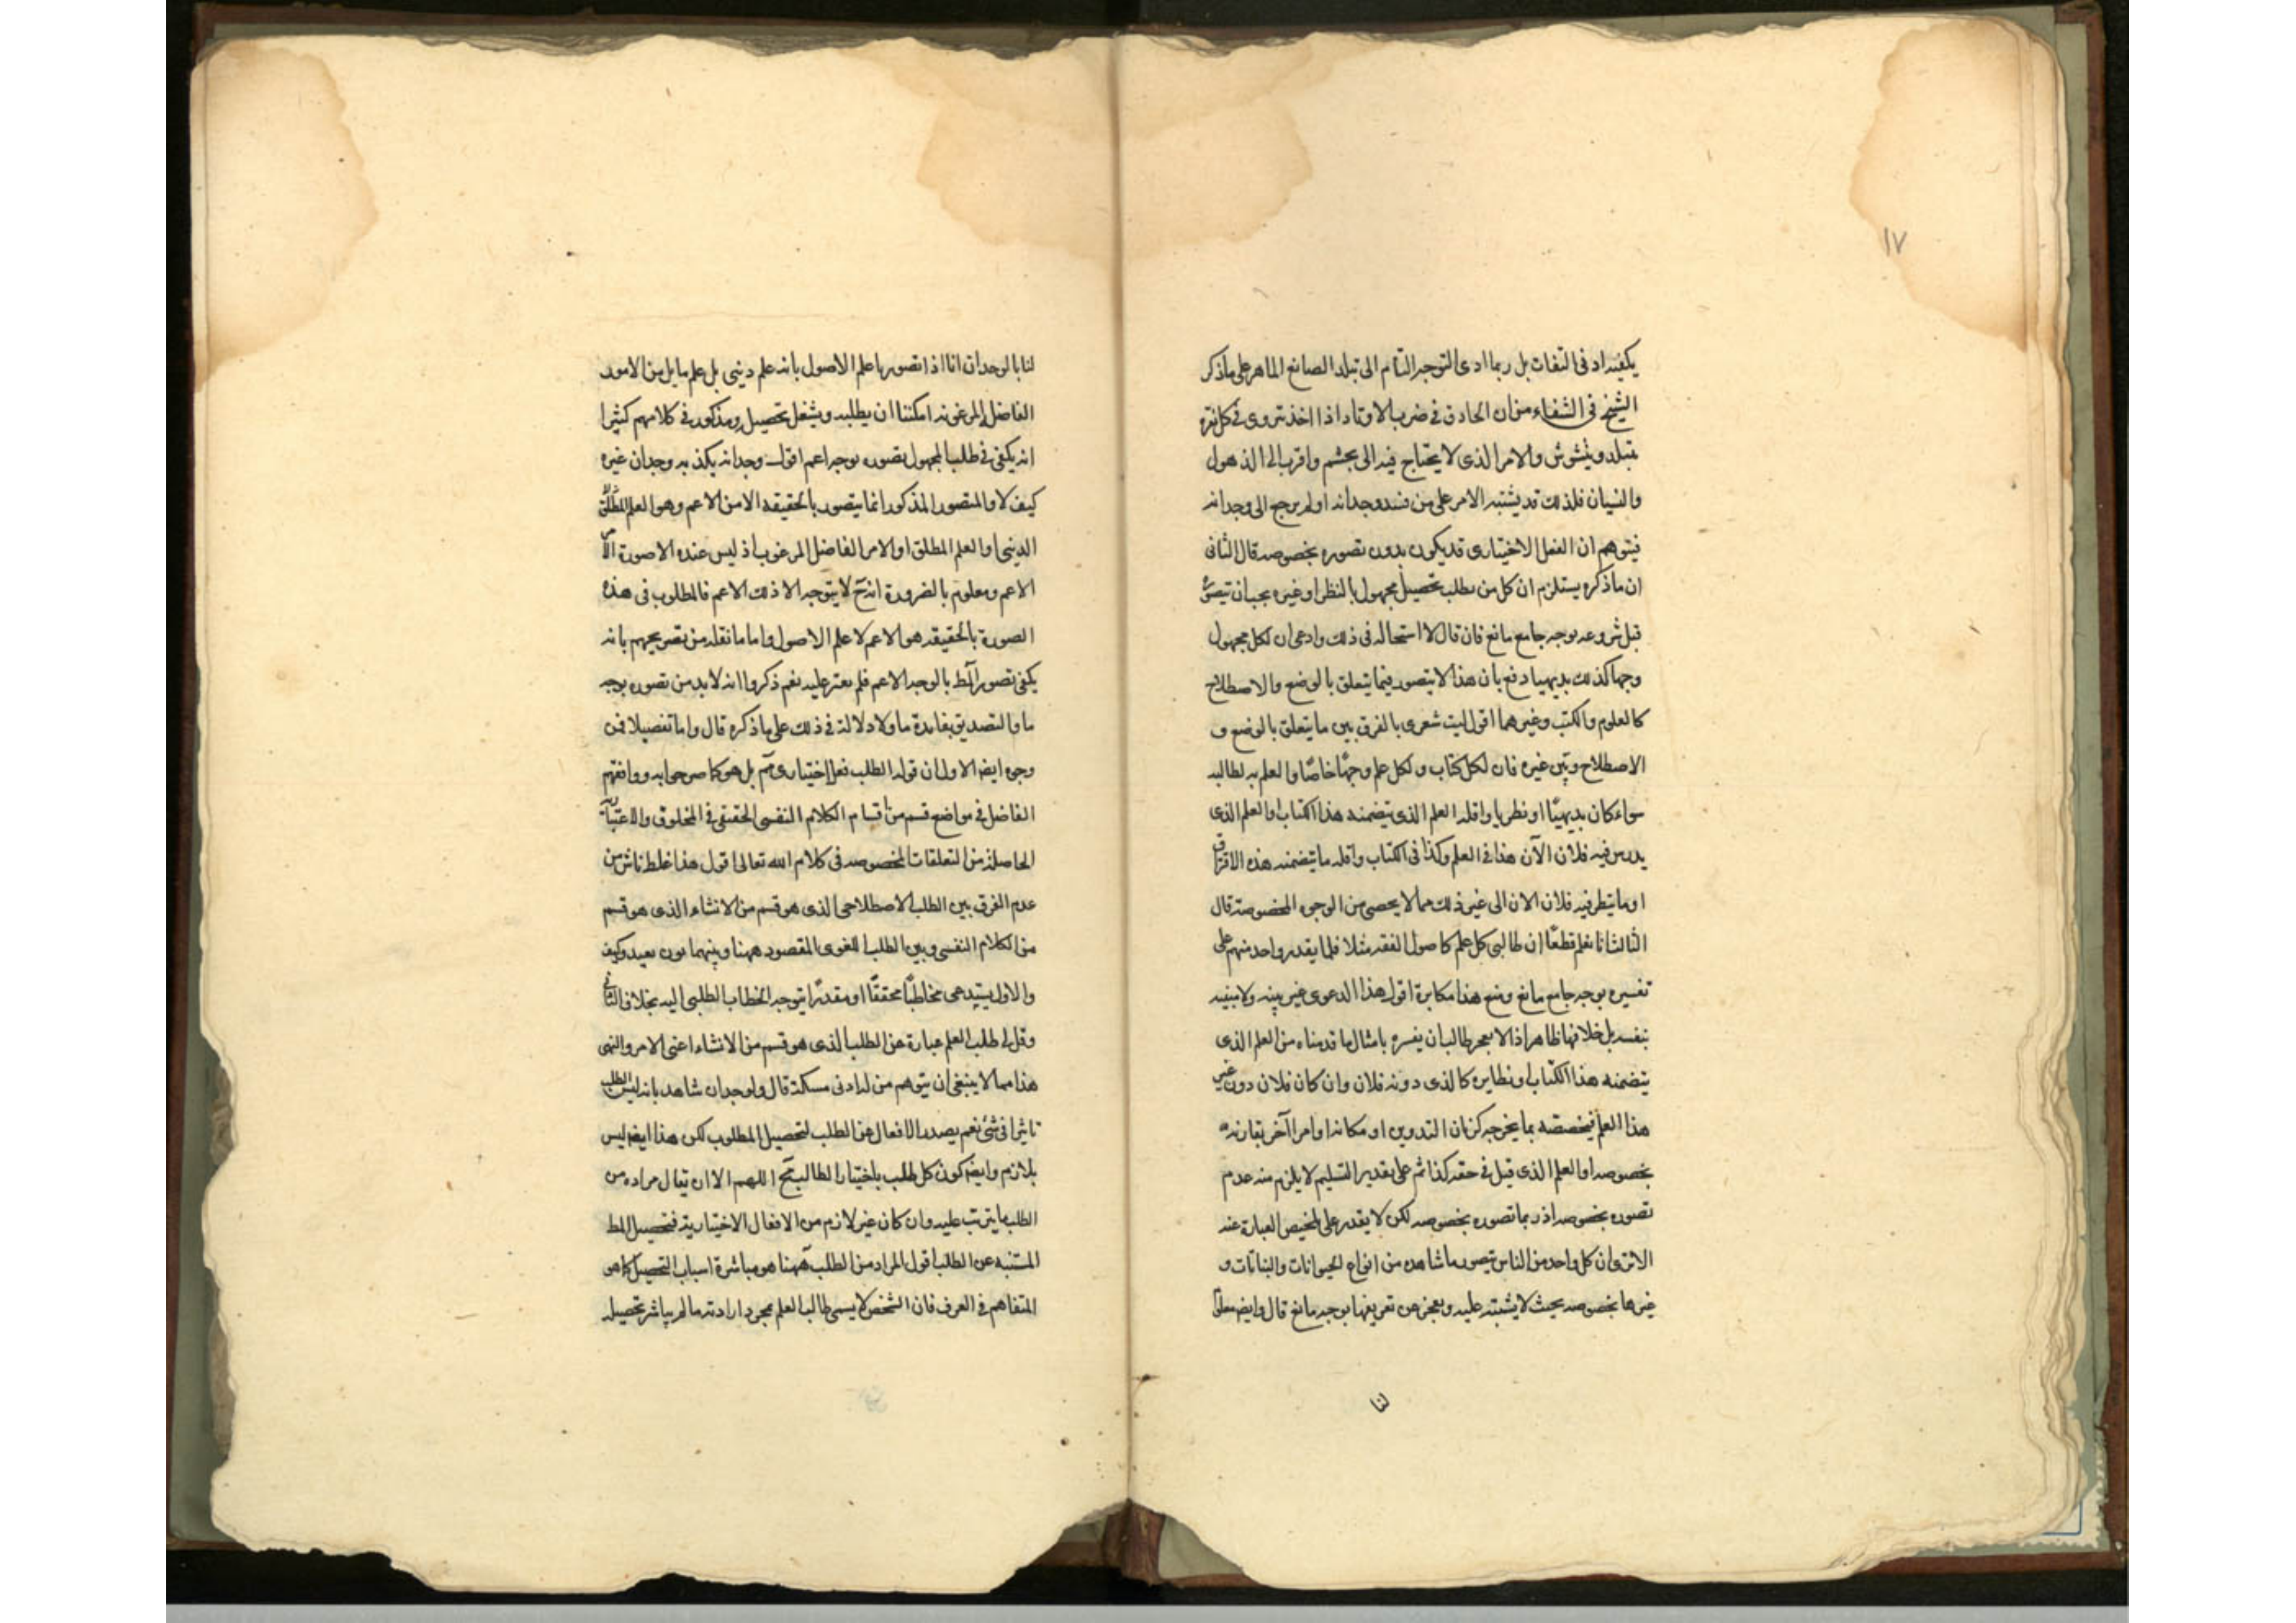 ١٧
يكفيه ادنى التفات بل ربما ادى التوجه التام الى تبلد الصانع الماهر على ما ذكر
الشيخ فى الشفاء من ان الحاذق فى ضرب الاوتار اذا اخذ يتروى فى كل نقرة
يتبلد ويشوش والامر الذى لا يحتاج فيه الى تجشم واقرب الى الذهول
والنسيان فلذلك قد يشتبه الامر على من فسد وجدانه او لم يرجع الى وجدانه
فيتوهم ان الفعل الاختيارى قد يكون بدون تصوره بخصوصه قال الثانى
ان ما ذكره يستلزم ان كل من يطلب تحصيل مجهول بالنظر او غيره يجب ان يتصوره
قبل شروعه بوجه جامع مانع فان قال لا استحاله فى ذلك وادعى ان لكل مجهول
وجها كذلك بديهيا دفع بان هذا لا يتصور فيما يتعلق بالوضع والاصطلاح
كالعلوم والكتب وغيرهما اقول ليت شعرى بالفرق بين ما يتعلق بالوضع و
الاصطلاح وبين غيره فان لكل كتاب ولكل علم وجها خاصا والعلم به لطالبه
سواء كان بديهيا او نظريا واقله العلم الذى يتضمنه هذا الكتاب او العلم الذى
يدرس فيه فلان الآن هذا فى العلم وكذا فى الكتاب واقله ما يتضمنه هذه الاوراق
او ما ينظر فيه فلان الان الى غير ذلك مما لا يحصى من الوجوه المخصوصة قال
الثالث انا نعلم قطعا ان طالبى كل علم كاصول الفقه مثلا قلما يقدر واحد منهم على
تفسيره بوجه جامع مانع ومنع هذا مكابرة اقول هذا الدعوى غير بينه ولا مبينه
بنفسه بل خلافها ظاهر اذ لا يعجز طالب ان يفسره بامثال ما قدمناه من العلم الذى
يتضمنه هذا الكتاب او نظايره كالذى دونه فلان وان كان فلان دون غير
هذا العلم فيخصصه بما يخرجه كزمان التدوين او مكانه او امر آخر يقارنه
بخصوصه او العلم الذى قيل فى حقه كذا ثم على تقدير التسليم لا يلزم منه عدم
تصوره بخصوصه اذ ربما تصوره بخصوصه لكن لا يقدر على تلخيص العبارة عنه
الا ترى ان كل واحد من الناس يتصور ما شاهده من انواع الحيوانات والنباتات و
غيرها بخصوصه بحيث لا يشتبه عليه ويعجز عن تعريفها بوجه مانع قال وايضا معلوم
لنا
لنا بالوجدان انا اذا تصورنا علم الاصول بانه علم دينى بل علم ما بل من الامور
الفاضل المرغوبه امكننا ان يطلبه ويشتغل بتحصيله ومذكور فى كلامهم كثيرا
انه يكفى فى طلب المجهول تصوره بوجه اعم اقول وجدانه يكذبه وجدان غيره
كيف لا والمتصور المذكور انما يتصور بالحقيقه الامر الاعم وهو العلم المطلق
الدينى او العلم المطلق او الامر الفاضل المرغوب اذ ليس عنده الا صورة الامر
الاعم ومعلوم بالضرورة انه ح لا يتوجه الا ذلك الاعم فالمطلوب فى هذه
الصورة بالحقيقه هو الاعم لا علم الاصول واما ما نقله من تصريحهم بانه
يكفى تصور المط بالوجه الاعم فلم نعثر عليه نعم ذكروا انه لا بد من تصوره بوجه
ما والتصديق بفايدة ما ولا دلالة فى ذلك على ما ذكره قال واما تفصيلا فمن
وجوه ايضا الاول ان قوله الطلب فعل اختيارى مم بل هو كما صرحوا به ووافقهم
الفاضل فى مواضع قسم من اقسام الكلام النفسى الحقيقى فى المخلوق والاعتبارى
الحاصلة من التعلقات المخصوصه فى كلام الله تعالى اقول هذا غلط ناش من
عدم الفرق بين الطلب الاصطلاحى الذى هو قسم من الانشاء الذى هو قسم
من الكلام النفسى وبين الطلب اللغوى المقصود ههنا وبينهما بون بعيد وكيف
والاول يستدعى مخاطبا محققا او مقدرا يتوجه الخطاب الطلبى اليه بخلاف الثانى
وقل لى طلب العلم عبارة عن الطلب الذى هو قسم من الانشاء اعنى الامر والنهى
هذا مما لا ينبغى ان يتوهم من له ادنى مسكة قال والوجدان شاهد بانه ليس الطلب
تاثيرا فى شئ نعم يصدر الافعال عن الطلب لتحصيل المطلوب لكن هذا ايضا ليس
بلازم وايضا كون كل طلب باختيار الطالب مح اللهم الا ان يقال مراده من
الطلب ما يترتب عليه وان كان غير لازم من الافعال الاختيارية فتحصيل المط
المستنبه عن الطلب اقول المراد من الطلب ههنا هو مباشرة اسباب التحصيل كما هو
المتفاهم فى العرف فان الشخص لا يسمى طالب العلم بمجرد ارادته ما لم يباشر تحصيله